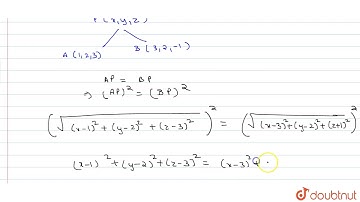 P(x,y,z)
A (1,2,3) B (3,2,-1)
AP = BP
⇒ (AP)² = (BP)²
(√((x-1)² + (y-2)² + (z-3)²))² = (√((x-3)² + (y-2)² + (z+1)²))²
(x-1)² + (y-2)² + (z-3)² = (x-3)²
doubtnut